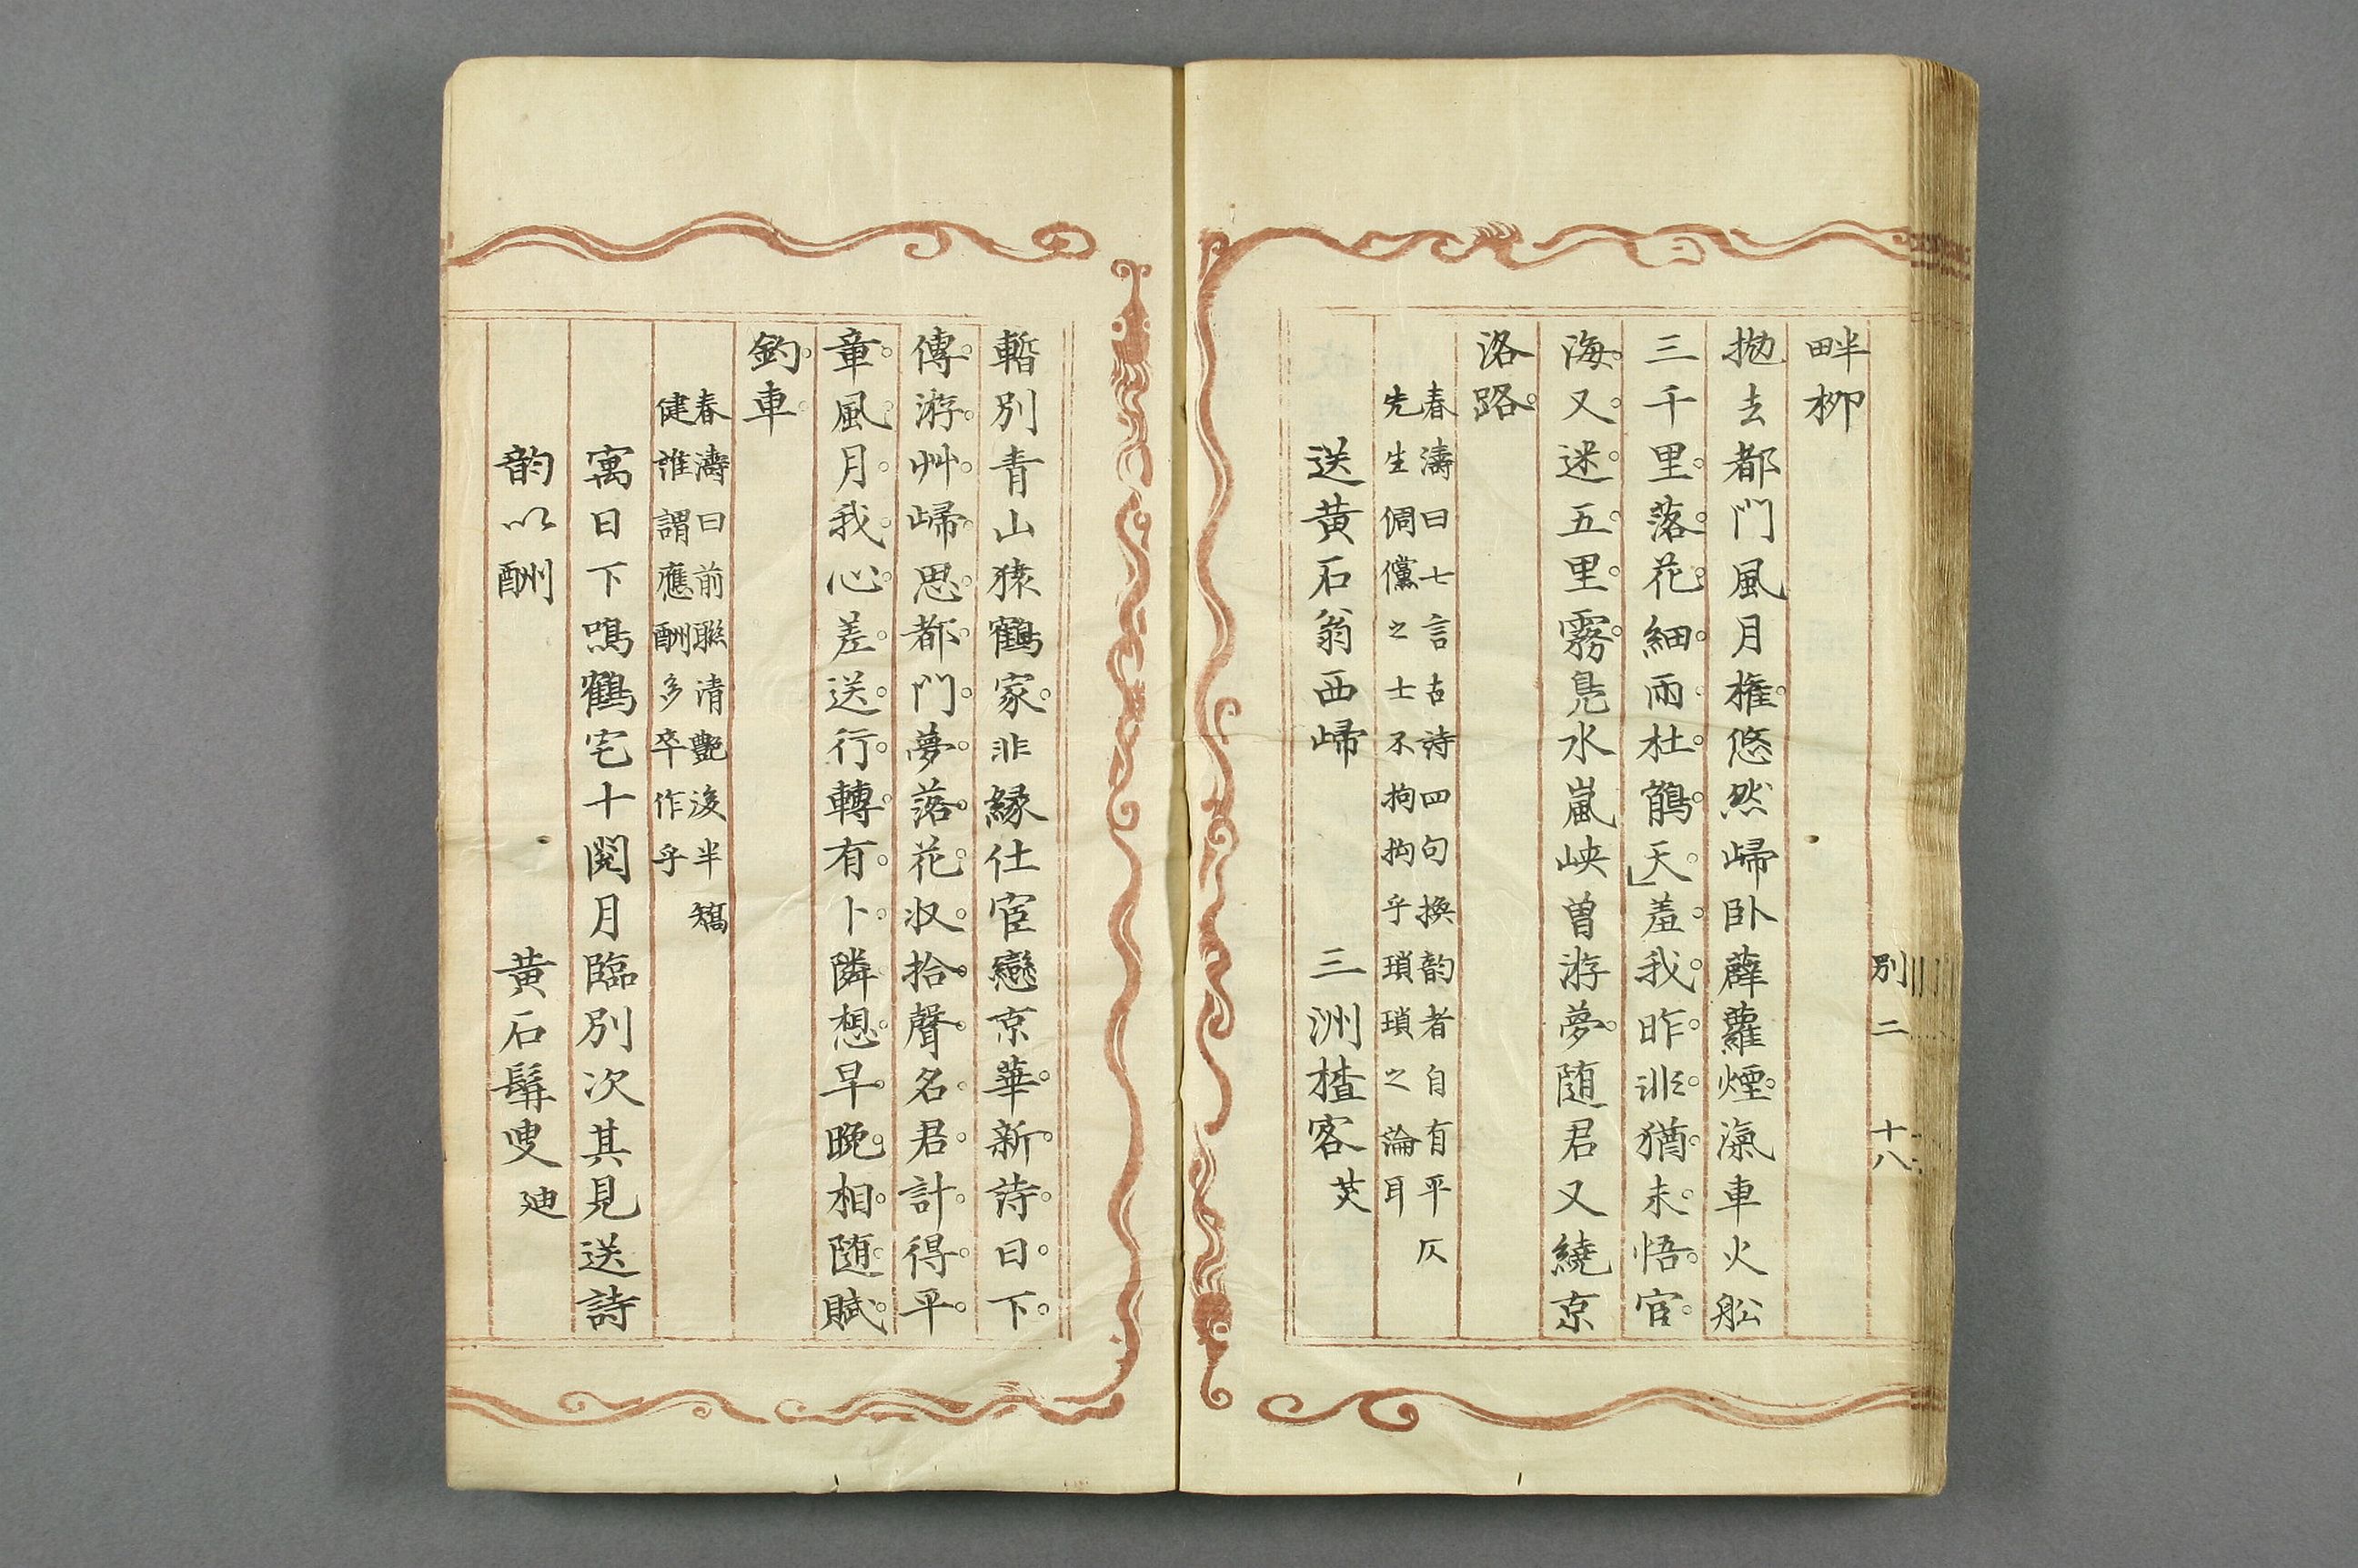 別二 十八
畔柳
拋去都門風月権悠然歸臥薜蘿煙滊車火舩
三千里落花細雨杜鵑天羞我昨非猶未悟官
海又迷五里霧鳧水嵐峡曽游夢随君又繞京
洛路
春濤曰七言古詩四句換韵者自有平仄
先生倜儻之士不拘拘乎瑣瑣之論耳
送黄石翁西歸 三洲楂客 炗
暫別青山猿鶴家非縁仕宦戀京華新詩日下
傳游艸歸思都門夢落花収拾聲名君計得平
章風月我心差送行轉有卜隣想早晩相随賦
釣車
春濤曰前聮清艶後半矯
健誰謂應酬多卒作乎
寓日下鳴鶴宅十閲月臨別次其見送詩
韵以酬 黄石髯叟 廸